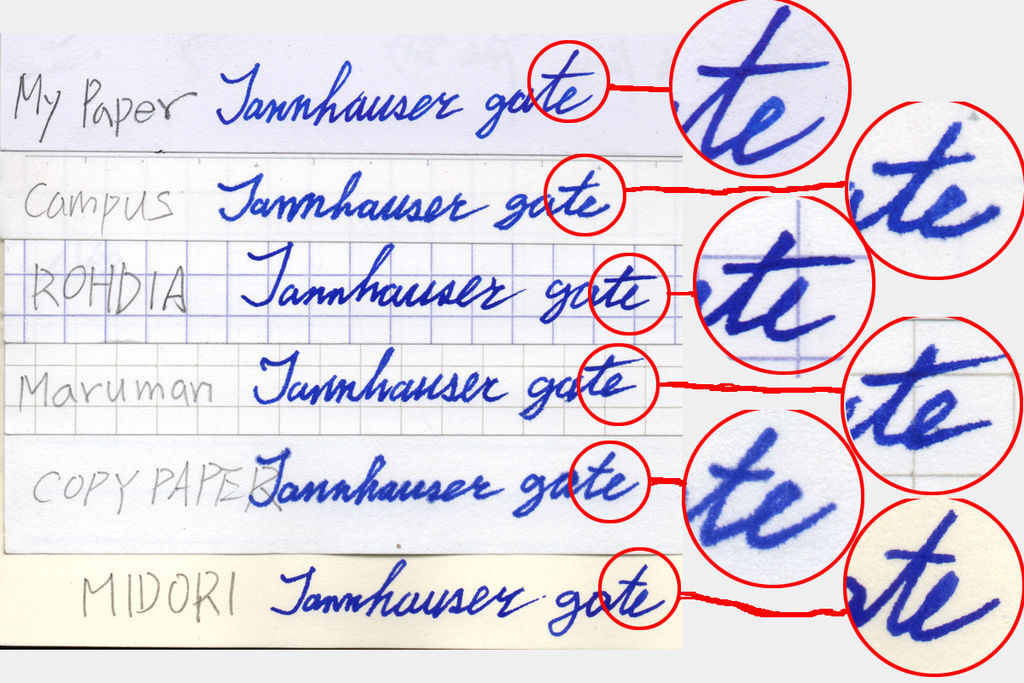 My Paper Tannhauser gate te
Campus Tannhauser gate te
ROHDIA Tannhauser gate te
Maruman Tannhauser gate te
COPY PAPER Tannhauser gate te
MIDORI Tannhauser gate te